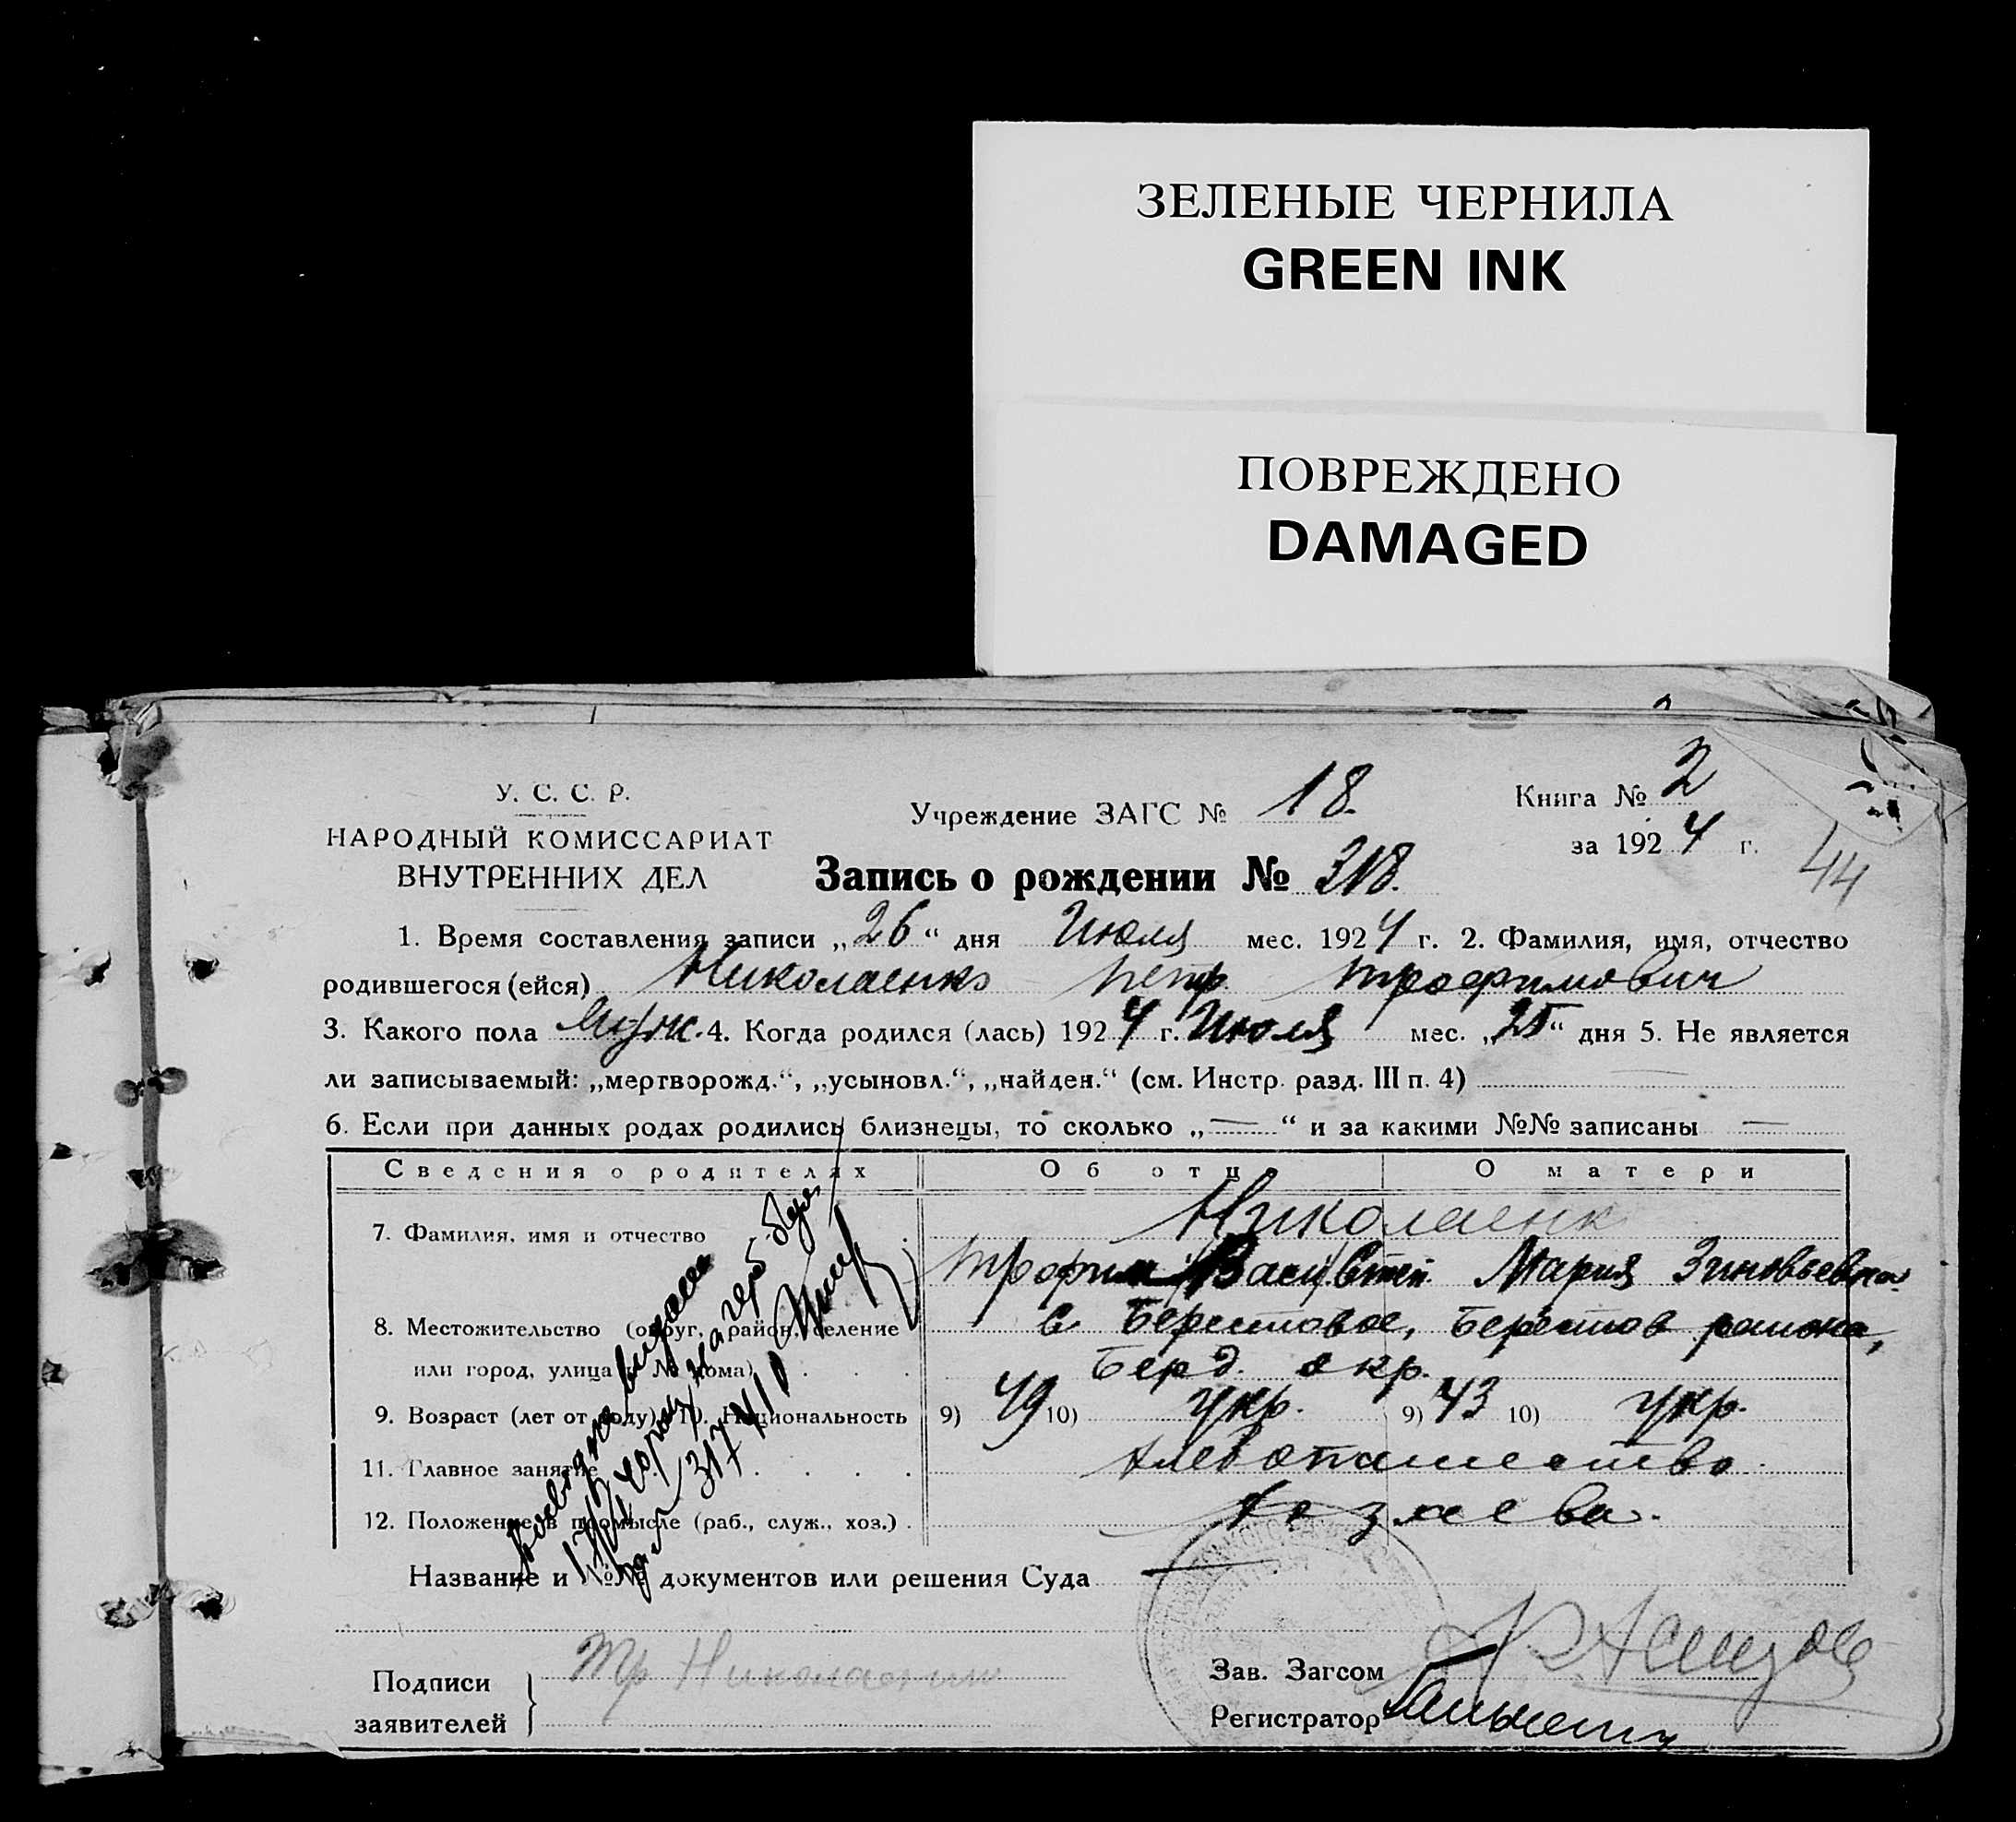 ЗЕЛЕНЫЕ ЧЕРНИЛА
GREEN INK
ПОВРЕЖДЕНО
DAMAGED
У. С. С. Р.
НАРОДНЫЙ КОМИССАРИАТ
ВНУТРЕННИХ ДЕЛ
Учреждение ЗАГС № 18.
Книга № 2
за 1924 г.
44
Запись о рождении № 318.
1. Время составления записи „26“ дня Июля мес. 1924 г. 2. Фамилия, имя, отчество
родившегося (ейся) Николаенко Петр Трофимович
3. Какого пола Муж. 4. Когда родился (лась) 1924 г. Июля мес. „25“ дня 5. Не является
ли записываемый: „мертворожд.“, „усыновл.“, „найден.“ (см. Инстр. разд. III п. 4)
6. Если при данных родах родились близнецы, то сколько „—“ и за какими №№ записаны —
Сведения о родителях Об отце О матери
7. Фамилия, имя и отчество Николаенк
Трофим Мария Зиновьевна
8. Местожительство (округ, район, селение с Берестовое, Берестов района,
или город, улица и № дома) Берд. окр.
9. Возраст (лет от роду) 10. Национальность 9) 49 10) Укр. 9) 43 10) Укр.
11. Главное занятие хлебопашество
12. Положение в промысле (раб., служ., хоз.) хозяева.
Название и №№ документов или решения Суда —
Подписи
заявителей
Тр Николаенко
Зав. Загсом
Регистратор